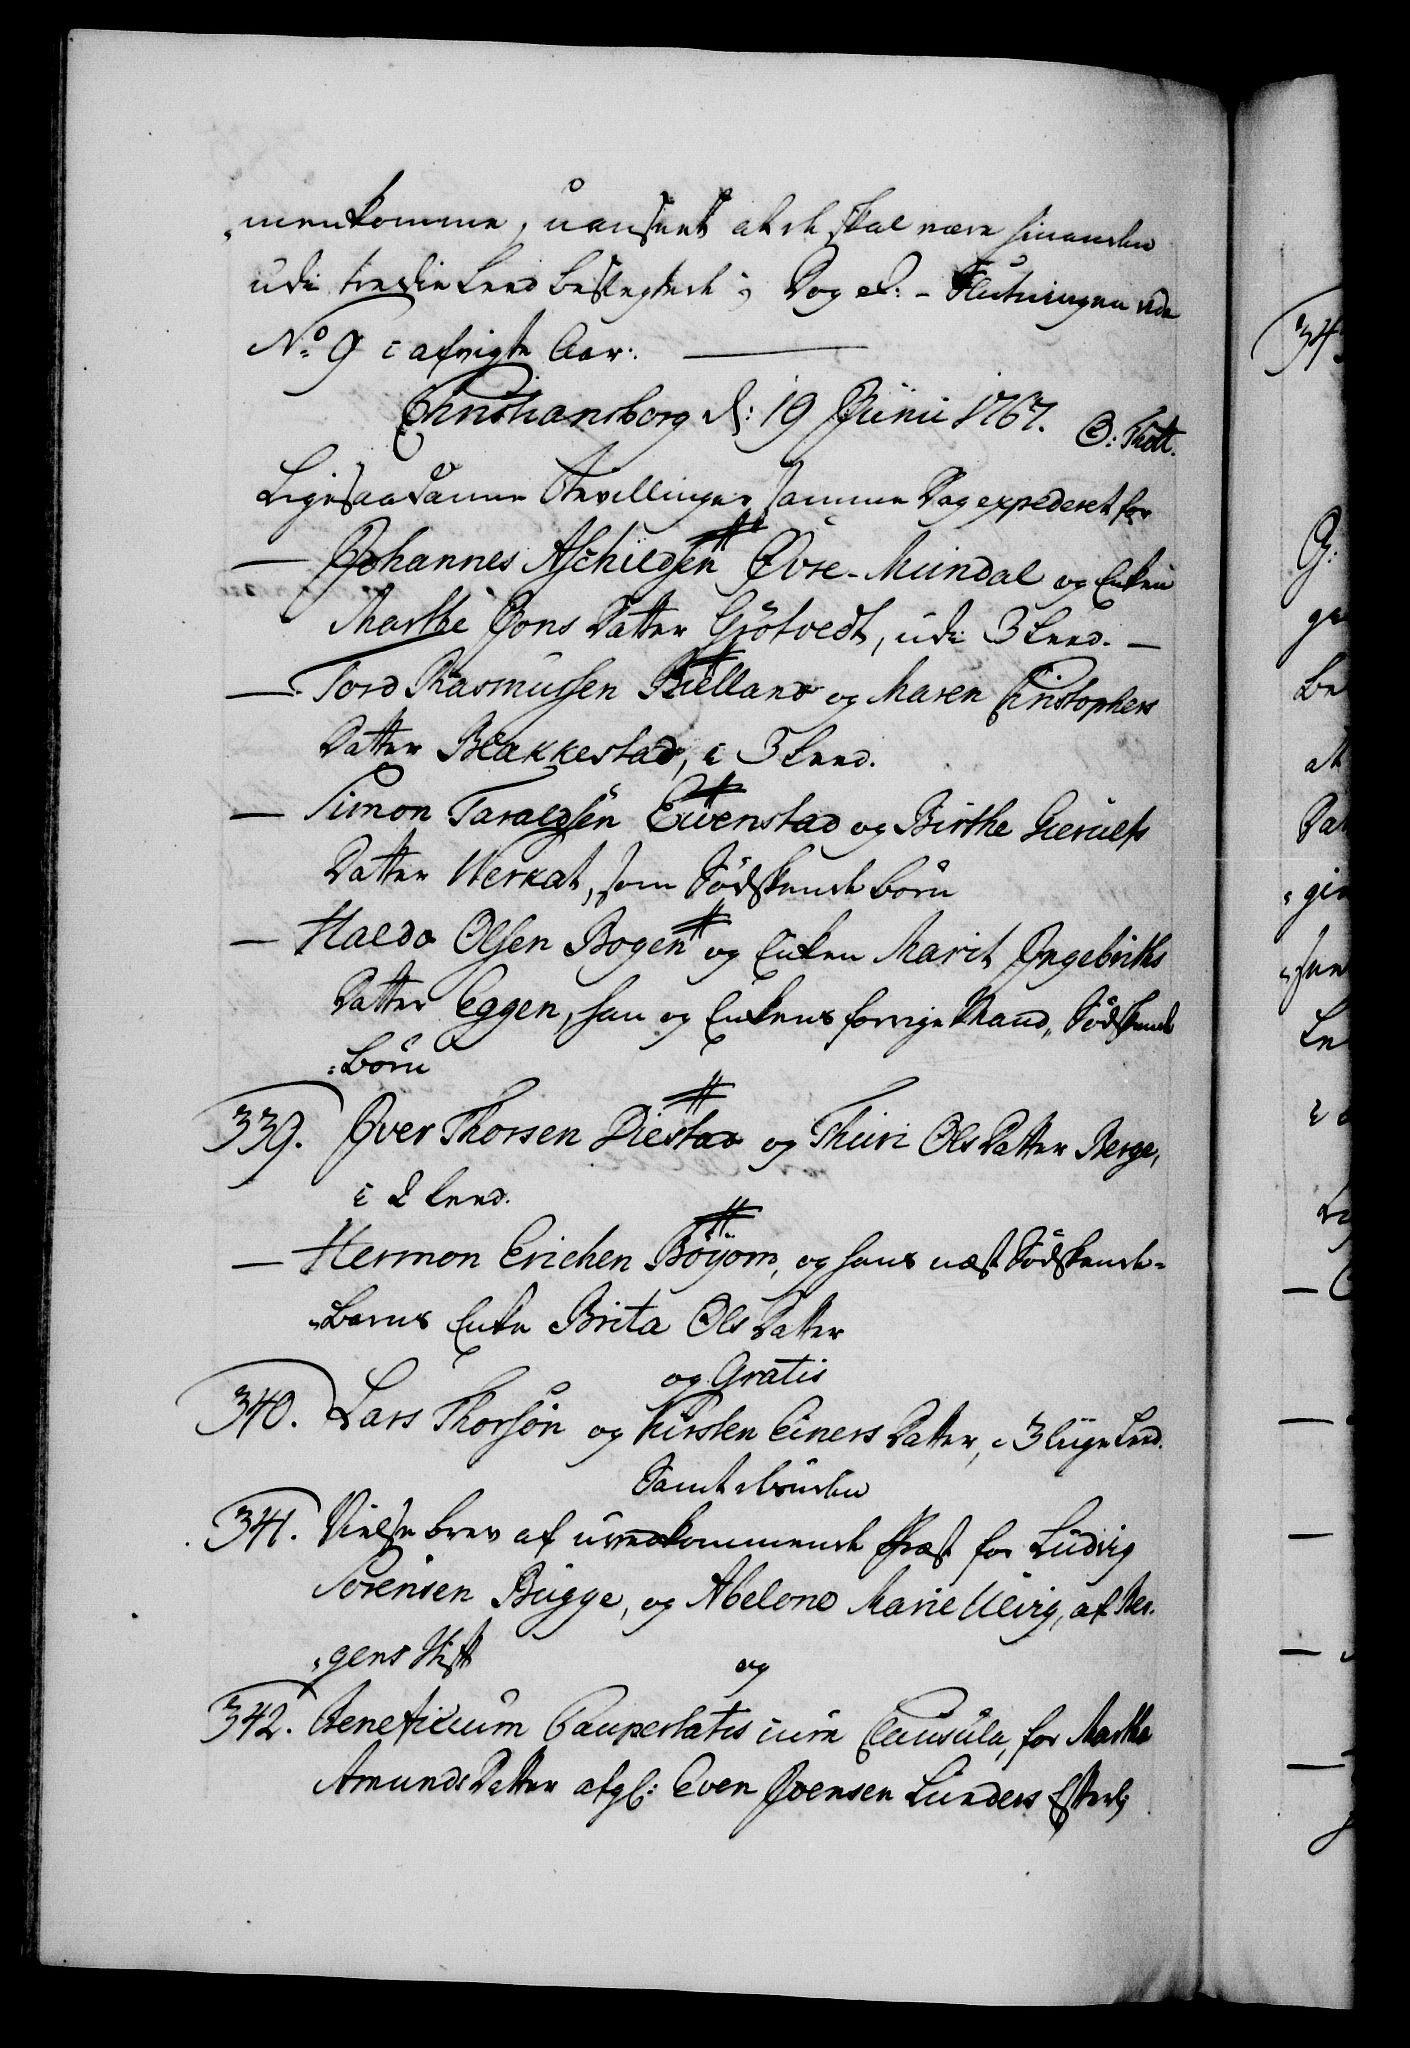 „menkomme, uanseet at de skal være hinanden
udi tredie Leed beslegtede; Dog etc: - Slutningen vide
No: 9 i afvigte Aar.
Christiansborg d: 19 Junii 1767. O: Thott.
Ligesaadanne Bevillinger samme Dag expederet for
— Johannes Aschildsen Øvre-Mundal og Enken
Marthe Jons Datter Grøtvedt, udi 3 Leed. —
— Tord Rasmussen Bielland og Maren Christophers
Datter Blakkestad, i 3 Leed.
— Simon Taraldsen Evenstad og Birthe Gierulfs
Datter Werkat, som Södskende Börn
— Haldo Olsen Bogen og Enken Marit Ingebriths
Datter Eggen, han og Enkens forrige Mand, Södskende
„Börn
339. Iver Thorsen Diestad og Thuri Ols Datter Berge,
i 2 Leed.
— Hermon Erichen Böÿom, og hans næst Södskende-
„Barns Enke Brita Ols Datter
og Gratis
340. Lars Thorsön og Kirsten Einers Datter, i 3 liige Leed.
Samt desuden
341. Vielse brev af uvedkommende Præst for Ludvig
Sörensen Bugge, og Abelone Marie Uevig, af Ber-
„gens Stift
og
342. Beneficium Paupertatis cum Clausula, for Martha
Amunds Datter afgl: Even Joensen Lunders Efterl: